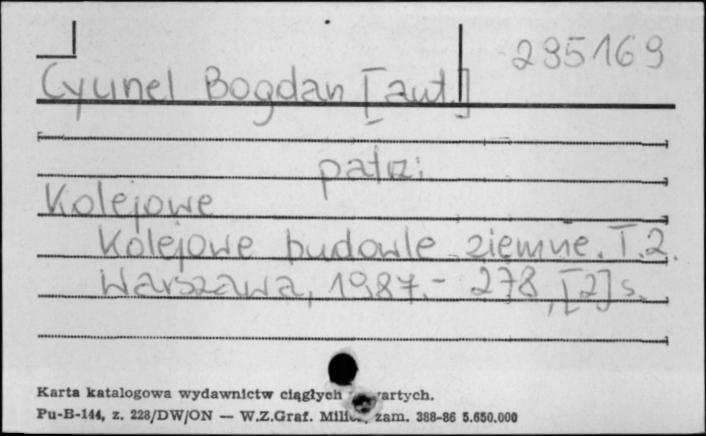 295169
Cyunel Bogdan [aut.]
patrz:
Kolejowe
Kolejowe budowle ziemne. T.2.
Warszawa, 1987.- 278, [2] s.
Karta katalogowa wydawnictw ciągłych
Pu-B-144, z. 228/DW/ON — W.Z.Graf. zam. 388-86 5.650.000